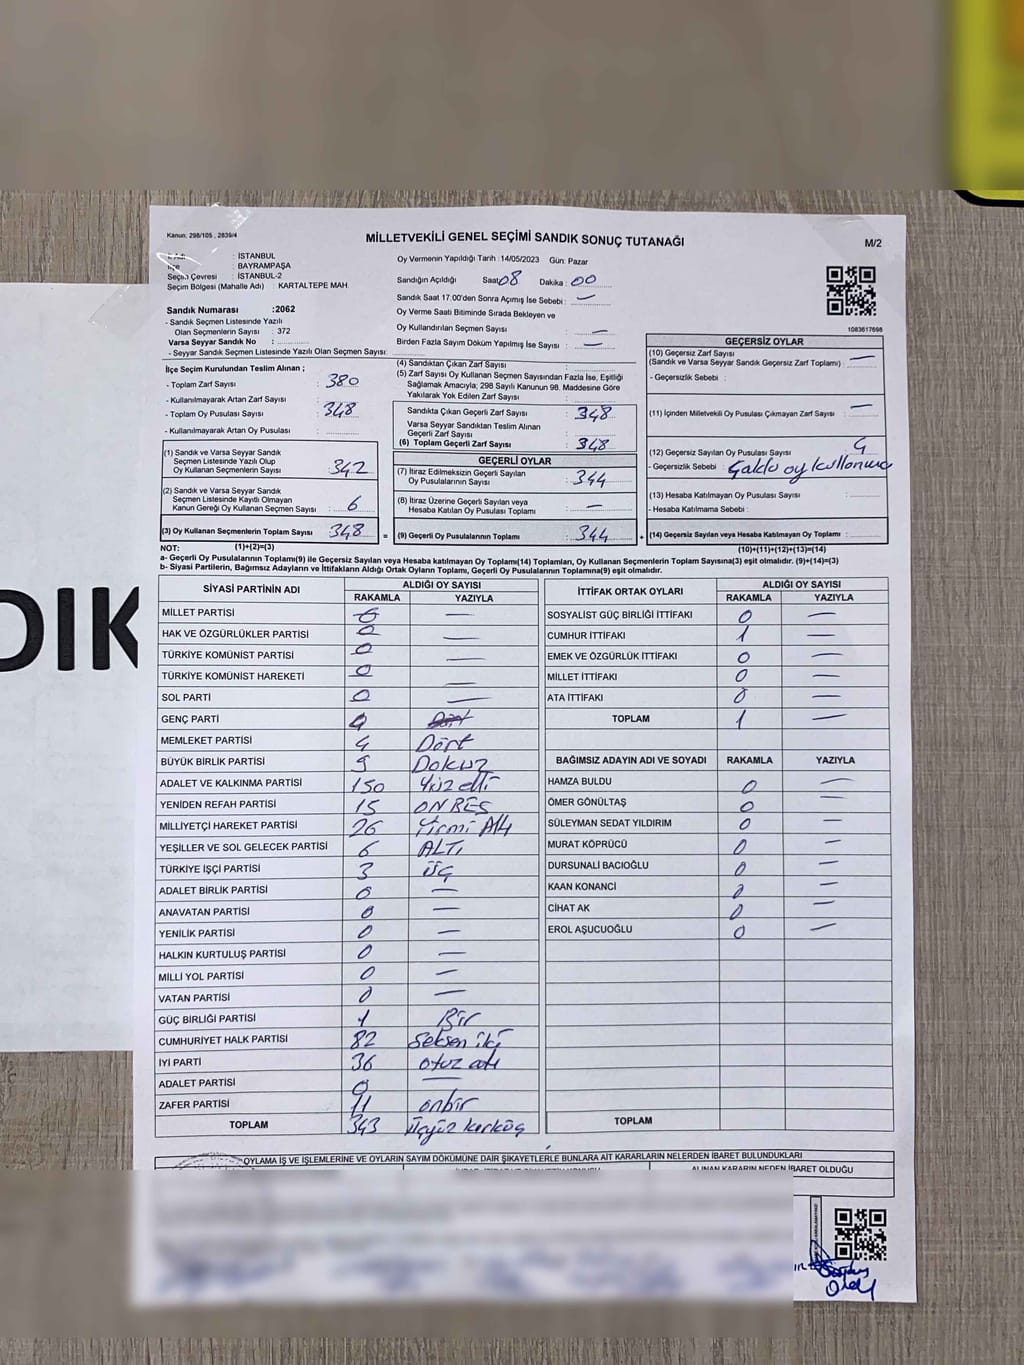 Kanun: 298/105 , 2839/4
MİLLETVEKİLİ GENEL SEÇİMİ SANDIK SONUÇ TUTANAĞI
M/2
: İSTANBUL
: BAYRAMPAŞA
Seçim Çevresi : İSTANBUL-2
Seçim Bölgesi (Mahalle Adı) : KARTALTEPE MAH.
Oy Vermenin Yapıldığı Tarih : 14/05/2023 Gün: Pazar
Sandığın Açıldığı Saat 08 Dakika : 00
Sandık Saat 17.00'den Sonra Açmış İse Sebebi : —
Oy Verme Saati Bitiminde Sırada Bekleyen ve
Oy Kullandırılan Seçmen Sayısı : —
Birden Fazla Sayım Döküm Yapılmış İse Sayısı : —
1083617698
Sandık Numarası :2062
- Sandık Seçmen Listesinde Yazılı
Olan Seçmenlerin Sayısı : 372
Varsa Seyyar Sandık No :
- Seyyar Sandık Seçmen Listesinde Yazılı Olan Seçmen Sayısı:
İlçe Seçim Kurulundan Teslim Alınan ;
- Toplam Zarf Sayısı : 380
- Kullanılmayarak Artan Zarf Sayısı :
- Toplam Oy Pusulası Sayısı : 348
- Kullanılmayarak Artan Oy Pusulası :
(1) Sandık ve Varsa Seyyar Sandık
Seçmen Listesinde Yazılı Olup
Oy Kullanan Seçmenlerin Sayısı : 342
(2) Sandık ve Varsa Seyyar Sandık
Seçmen Listesinde Kayıtlı Olmayan
Kanun Gereği Oy Kullanan Seçmen Sayısı : 6
(3) Oy Kullanan Seçmenlerin Toplam Sayısı : 348 =
(1)+(2)=(3)
(4) Sandıktan Çıkan Zarf Sayısı :
(5) Zarf Sayısı Oy Kullanan Seçmen Sayısından Fazla İse, Eşitliği
Sağlamak Amacıyla; 298 Sayılı Kanunun 98. Maddesine Göre
Yakılarak Yok Edilen Zarf Sayısı :
Sandıkta Çıkan Geçerli Zarf Sayısı : 348
Varsa Seyyar Sandıktan Teslim Alınan
Geçerli Zarf Sayısı :
(6) Toplam Geçerli Zarf Sayısı : 348
GEÇERLİ OYLAR
(7) İtiraz Edilmeksizin Geçerli Sayılan
Oy Pusulalarının Sayısı : 344
(8) İtiraz Üzerine Geçerli Sayılan veya
Hesaba Katılan Oy Pusulası Toplamı : —
(9) Geçerli Oy Pusulalarının Toplamı : 344 +
GEÇERSİZ OYLAR
(10) Geçersiz Zarf Sayısı
(Sandık ve Varsa Seyyar Sandık Geçersiz Zarf Toplamı) : —
- Geçersizlik Sebebi :
(11) İçinden Milletvekili Oy Pusulası Çıkmayan Zarf Sayısı : —
(12) Geçersiz Sayılan Oy Pusulası Sayısı : 4
- Geçersizlik Sebebi : oy
(13) Hesaba Katılmayan Oy Pusulası Sayısı :
- Hesaba Katılmama Sebebi :
(14) Geçersiz Sayılan veya Hesaba Katılmayan Oy Toplamı :
(10)+(11)+(12)+(13)=(14)
NOT:
a- Geçerli Oy Pusulalarının Toplamı(9) ile Geçersiz Sayılan veya Hesaba katılmayan Oy Toplamı(14) Toplamları, Oy Kullanan Seçmenlerin Toplam Sayısına(3) eşit olmalıdır. (9)+(14)=(3)
b- Siyasi Partilerin, Bağımsız Adayların ve İttifakların Aldığı Ortak Oyların Toplamı, Geçerli Oy Pusulalarının Toplamına(9) eşit olmalıdır.
SİYASİ PARTİNİN ADI ALDIĞI OY SAYISI
RAKAMLA YAZIYLA
MİLLET PARTİSİ 0 —
HAK VE ÖZGÜRLÜKLER PARTİSİ 0 —
TÜRKİYE KOMÜNİST PARTİSİ 0 —
TÜRKİYE KOMÜNİST HAREKETİ 0 —
SOL PARTİ 0 —
GENÇ PARTİ
MEMLEKET PARTİSİ 4 Dört
BÜYÜK BİRLİK PARTİSİ 9 Dokuz
ADALET VE KALKINMA PARTİSİ 150 Yüz elli
YENİDEN REFAH PARTİSİ 15 ON BEŞ
MİLLİYETÇİ HAREKET PARTİSİ 26 Yirmi Altı
YEŞİLLER VE SOL GELECEK PARTİSİ 6 ALTI
TÜRKİYE İŞÇİ PARTİSİ 3 üç
ADALET BİRLİK PARTİSİ 0 —
ANAVATAN PARTİSİ 0 —
YENİLİK PARTİSİ 0 —
HALKIN KURTULUŞ PARTİSİ 0 —
MİLLİ YOL PARTİSİ 0 —
VATAN PARTİSİ 0 —
GÜÇ BİRLİĞİ PARTİSİ 1 Bir
CUMHURİYET HALK PARTİSİ 82 Seksen iki
İYİ PARTİ 36 otuz altı
ADALET PARTİSİ 0 —
ZAFER PARTİSİ 11 onbir
TOPLAM 343 Üçyüz kırküç
İTTİFAK ORTAK OYLARI ALDIĞI OY SAYISI
RAKAMLA YAZIYLA
SOSYALİST GÜÇ BİRLİĞİ İTTİFAKI 0 —
CUMHUR İTTİFAKI 1 —
EMEK VE ÖZGÜRLÜK İTTİFAKI 0 —
MİLLET İTTİFAKI 0 —
ATA İTTİFAKI 0 —
TOPLAM 1 —
BAĞIMSIZ ADAYIN ADI VE SOYADI RAKAMLA YAZIYLA
HAMZA BULDU 0 —
ÖMER GÖNÜLTAŞ 0 —
SÜLEYMAN SEDAT YILDIRIM 0 —
MURAT KÖPRÜCÜ 0 —
DURSUNALİ BACIOĞLU 0 —
KAAN KONANCİ 0 —
CİHAT AK 0 —
EROL AŞUCUOĞLU 0 —
TOPLAM
OYLAMA İŞ VE İŞLEMLERİNE VE OYLARIN SAYIM DÖKÜMÜNE DAİR ŞİKAYETLERLE BUNLARA AİT KARARLARIN NELERDEN İBARET BULUNDUKLARI
ALINAN KARARIN NEDEN İBARET OLDUĞU
DIK